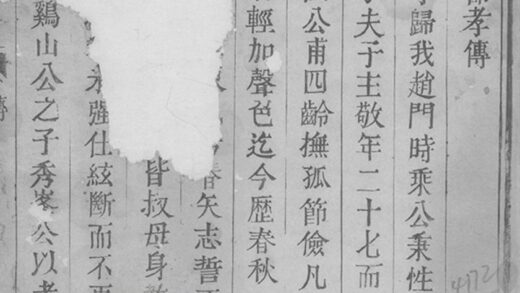 孝傳
歸我趙門時乘公秉性
夫子主敬年二十七而
公甫四齡撫孤節儉凡
輕加聲色迄今歷春秋
矢志誓
皆叔母身
強仕絃斷而不
鷄山公之子秀峯公以